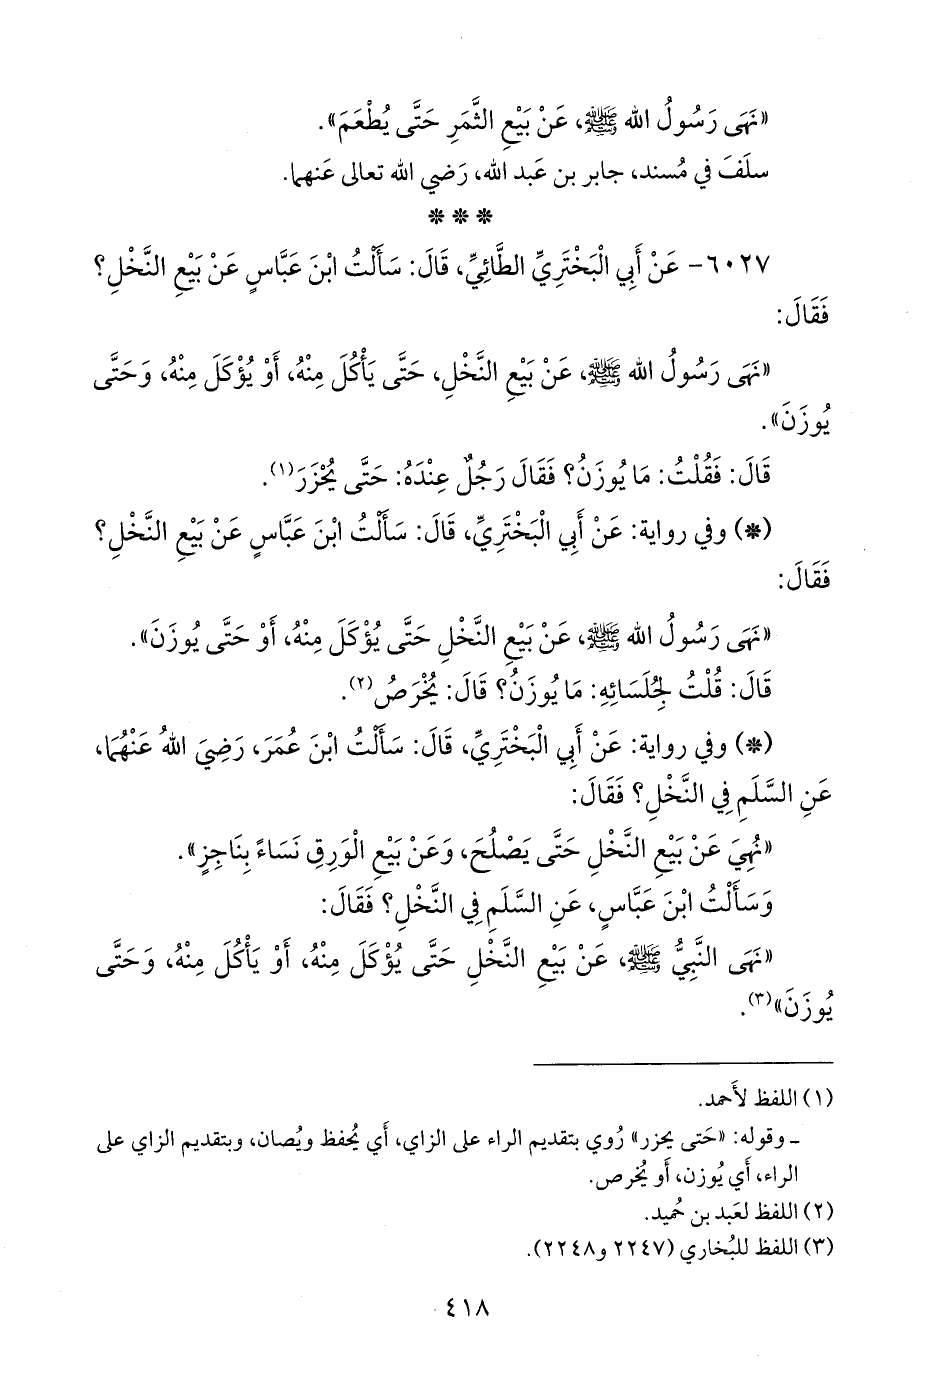 «نَهَى رَسُولُ الله ﷺ، عَنْ بَيْعِ الثَّمَرِ حَتَّى يُطْعَمَ».
سلَفَ في مُسند، جابر بن عَبد الله، رَضي الله تعالى عَنهما.
***
٦٠٢٧- عَنْ أَبِي الْبَخْتَرِيِّ الطَّائِيِّ، قَالَ: سَأَلْتُ ابْنَ عَبَّاسٍ عَنْ بَيْعِ النَّخْلِ؟
فَقَالَ:
«نَهَى رَسُولُ الله ﷺ، عَنْ بَيْعِ النَّخْلِ، حَتَّى يَأْكُلَ مِنْهُ، أَوْ يُؤْكَلَ مِنْهُ، وَحَتَّى
يُوزَنَ».
قَالَ: فَقُلْتُ: مَا يُوزَنُ؟ فَقَالَ رَجُلٌ عِنْدَهُ: حَتَّى يُحْزَرَ(١).
(*) وفي رواية: عَنْ أَبِي الْبَخْتَرِيِّ، قَالَ: سَأَلْتُ ابْنَ عَبَّاسٍ عَنْ بَيْعِ النَّخْلِ؟
فَقَالَ:
«نَهَى رَسُولُ الله ﷺ، عَنْ بَيْعِ النَّخْلِ حَتَّى يُؤْكَلَ مِنْهُ، أَوْ حَتَّى يُوزَنَ».
قَالَ: قُلْتُ لِجُلَسَائِهِ: مَا يُوزَنُ؟ قَالَ: يُخْرَصُ(٢).
(*) وفي رواية: عَنْ أَبِي الْبَخْتَرِيِّ، قَالَ: سَأَلْتُ ابْنَ عُمَرَ، رَضِيَ اللهُ عَنْهُمَا،
عَنِ السَّلَمِ فِي النَّخْلِ؟ فَقَالَ:
«نُهِيَ عَنْ بَيْعِ النَّخْلِ حَتَّى يَصْلُحَ، وَعَنْ بَيْعِ الْوَرِقِ نَسَاءً بِنَاجِزٍ».
وَسَأَلْتُ ابْنَ عَبَّاسٍ، عَنِ السَّلَمِ فِي النَّخْلِ؟ فَقَالَ:
«نَهَى النَّبِيُّ ﷺ، عَنْ بَيْعِ النَّخْلِ حَتَّى يُؤْكَلَ مِنْهُ، أَوْ يَأْكُلَ مِنْهُ، وَحَتَّى
يُوزَنَ»(٣).
(١) اللفظ لأَحمد.
ـ وقوله: «حَتى يحزر» رُوي بتقديم الراء على الزاي، أَي يُحفظ ويُصان، وبتقديم الزاي على
الراء، أَي يُوزن، أَو يُخرص.
(٢) اللفظ لعَبد بن حُميد.
(٣) اللفظ للبُخاري (٢٢٤٧ و٢٢٤٨).
٤١٨